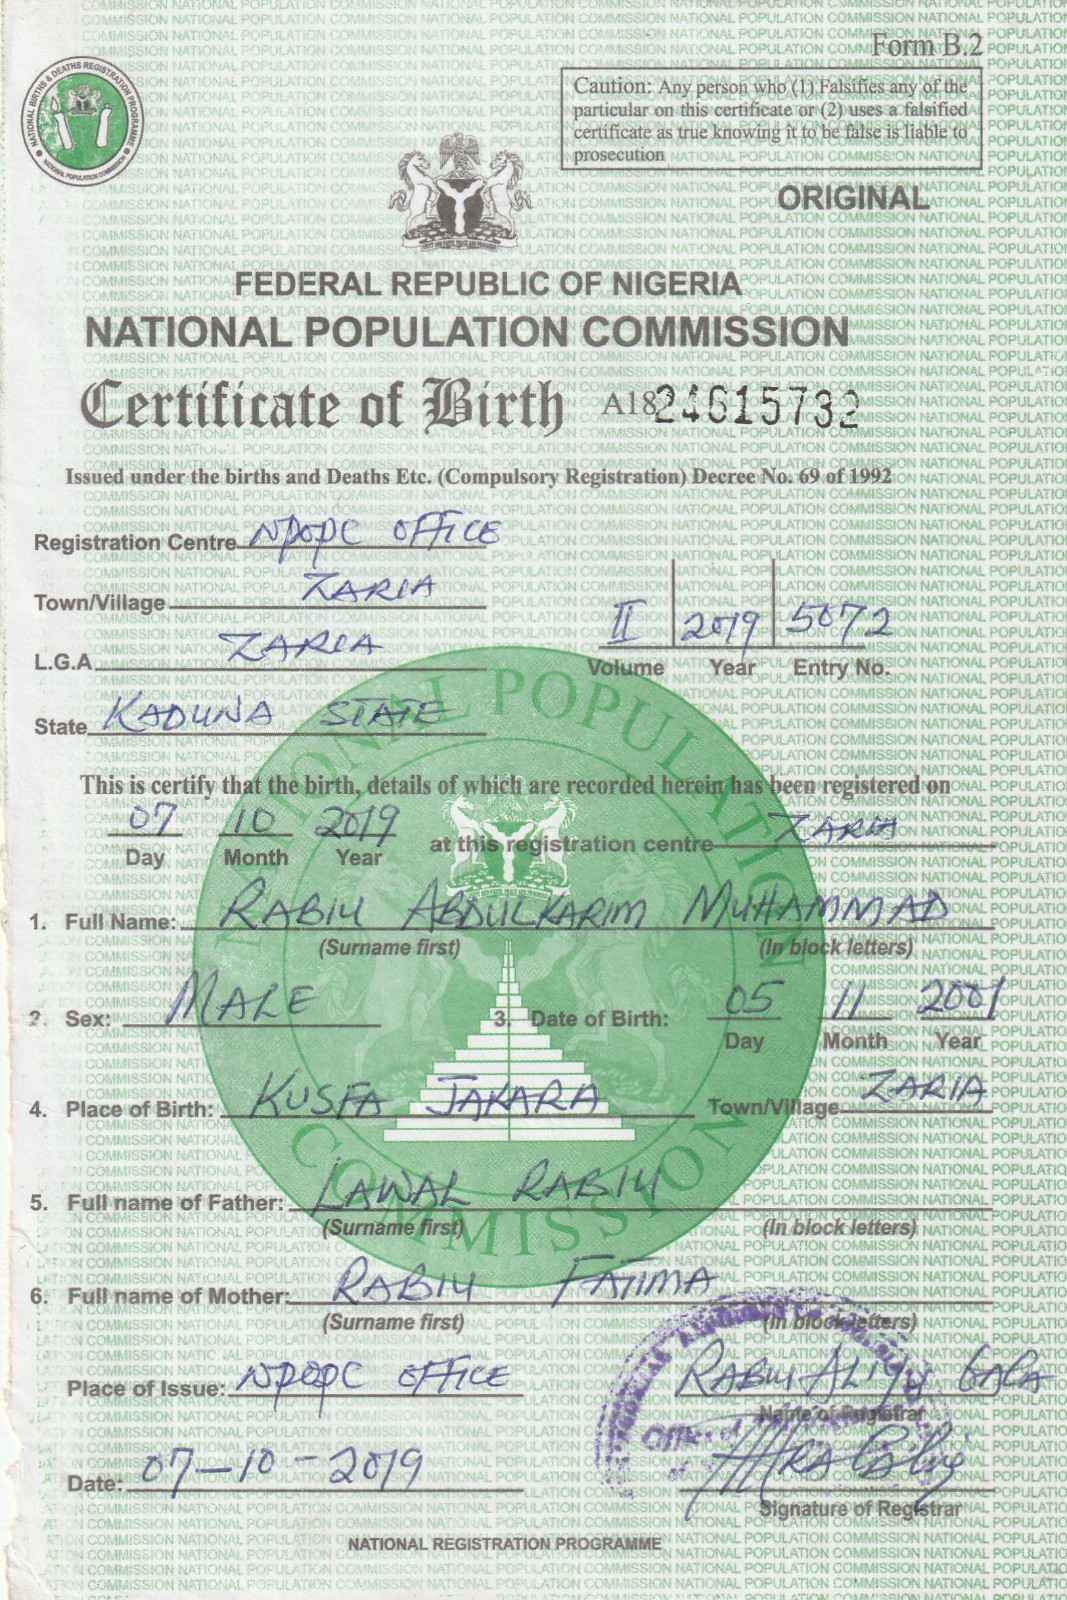 Form B.2
NATIONAL BIRTHS & DEATHS REGISTRATION PROGRAMME
NATIONAL POPULATION COMMISSION
Caution: Any person who (1) Falsifies any of the
particular on this certificate or (2) uses a falsified
certificate as true knowing it to be false is liable to
prosecution
ORIGINAL
FEDERAL REPUBLIC OF NIGERIA
NATIONAL POPULATION COMMISSION
Certificate of Birth A18 24615732
Issued under the births and Deaths Etc. (Compulsory Registration) Decree No. 69 of 1992
Registration Centre NPOPC OFFICE
Town/Village ZARIA
II 2019 5072
L.G.A ZARIA
Volume Year Entry No.
State KADUNA STATE
This is certify that the birth, details of which are recorded herein has been registered on
07 10 2019 at this registration centre ZARIA
Day Month Year
1. Full Name: RABIU ABDULKARIM MUHAMMAD
(Surname first) (In block letters)
2. Sex: MALE 3. Date of Birth: 05 11 2001
Day Month Year
4. Place of Birth: KUSFA JAKARA Town/Village ZARIA
5. Full name of Father: LAWAL RABIU
(Surname first) (In block letters)
6. Full name of Mother: RABIU FATIMA
(Surname first) (In block letters)
Place of Issue: NPOPC OFFICE RABIU ALIYU
Name of Registrar
Date: 07-10-2019
Signature of Registrar
NATIONAL REGISTRATION PROGRAMME
NATIONAL POPULATION COMMISSION